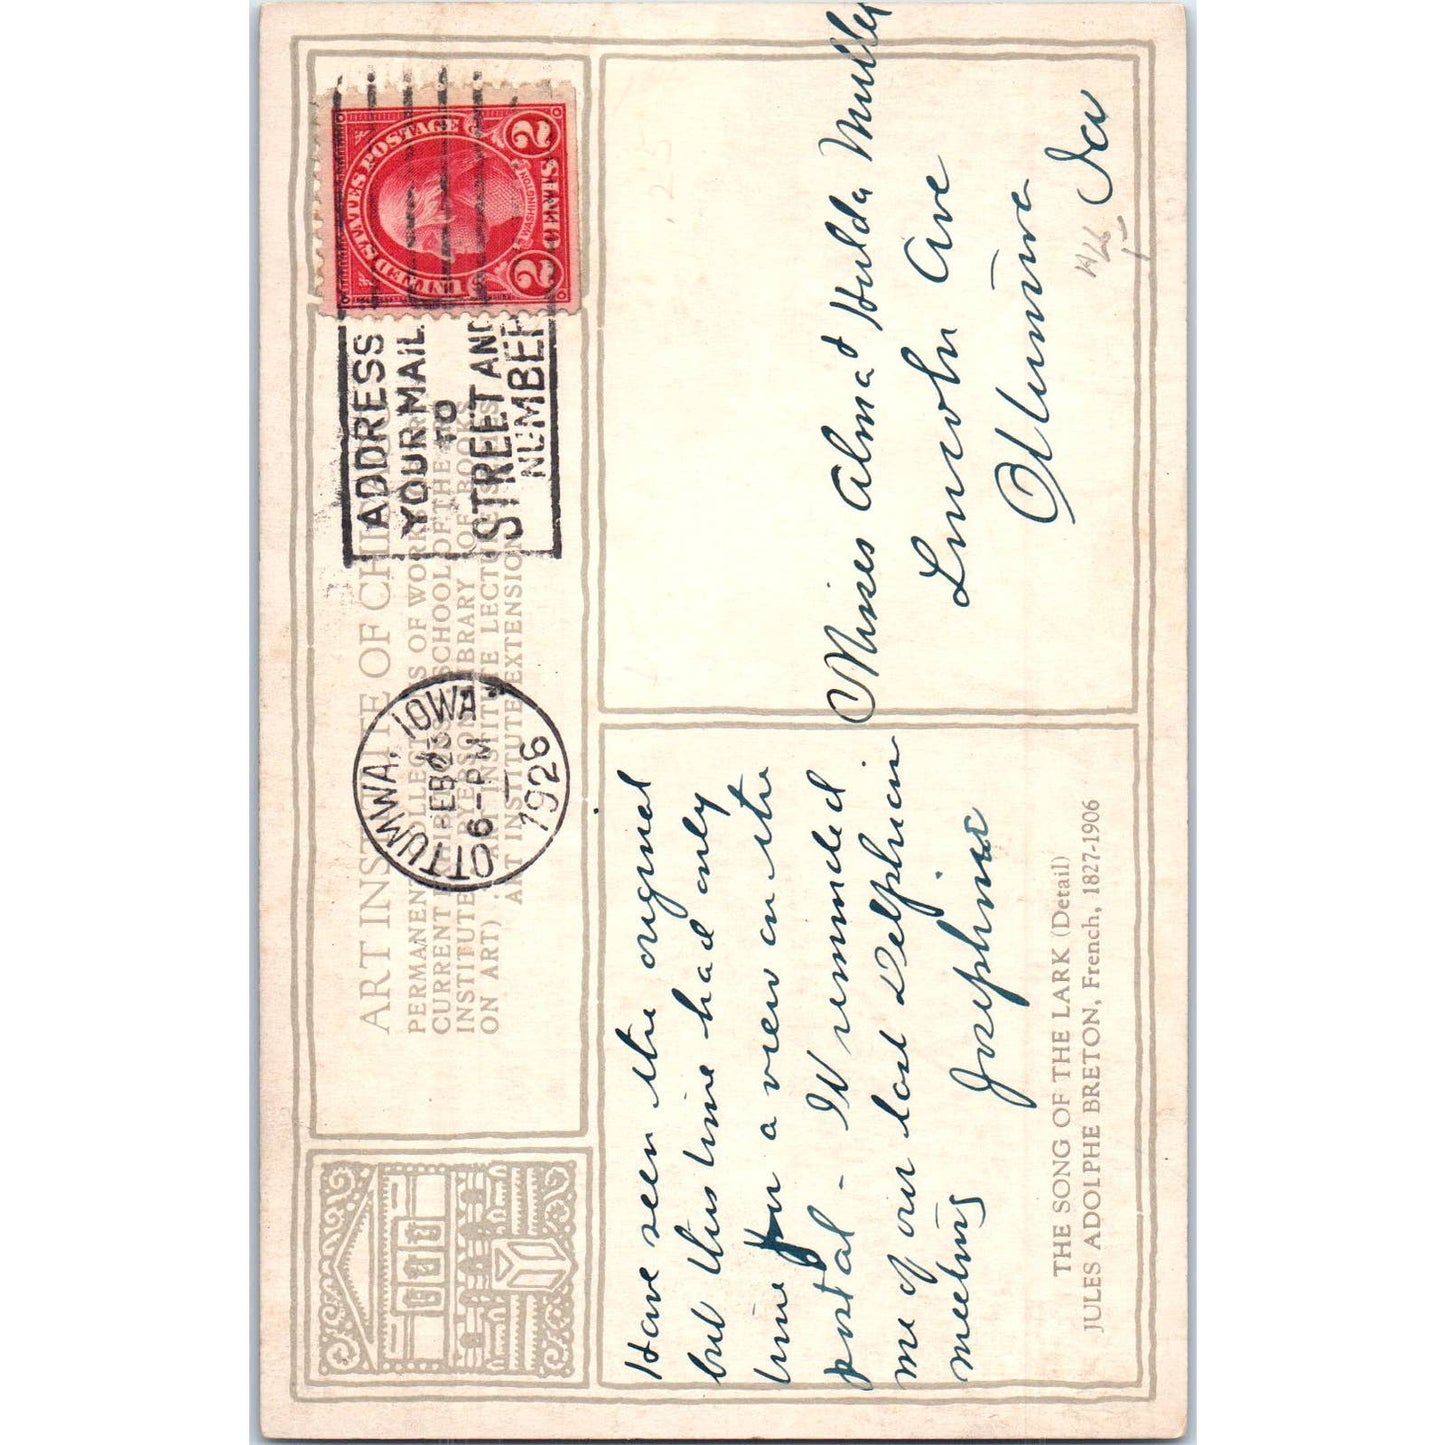 ART INSTITUTE OF CHICAGO
PERMANENT COLLECTIONS OF WORKS OF ART
CURRENT EXHIBITIONS SCHOOL OF THE ART
INSTITUTE RYERSON LIBRARY (OF BOOKS
ON ART) ART INSTITUTE LECTURES
ART INSTITUTE EXTENSION
OTTUMWA, IOWA
FEB 23
6-PM
1926
ADDRESS
YOUR MAIL
TO
STREET AND
NUMBER
UNITED STATES POSTAGE
WASHINGTON
2 CENTS 2
Have seen the original
but this time had only
time for a view on the
postal - It reminded
me of our last Delphian
meeting
Josephine
Misses Alma & Hulda Muller
Lincoln Ave
Ottumwa
Ia
THE SONG OF THE LARK (Detail)
JULES ADOLPHE BRETON, French, 1827-1906